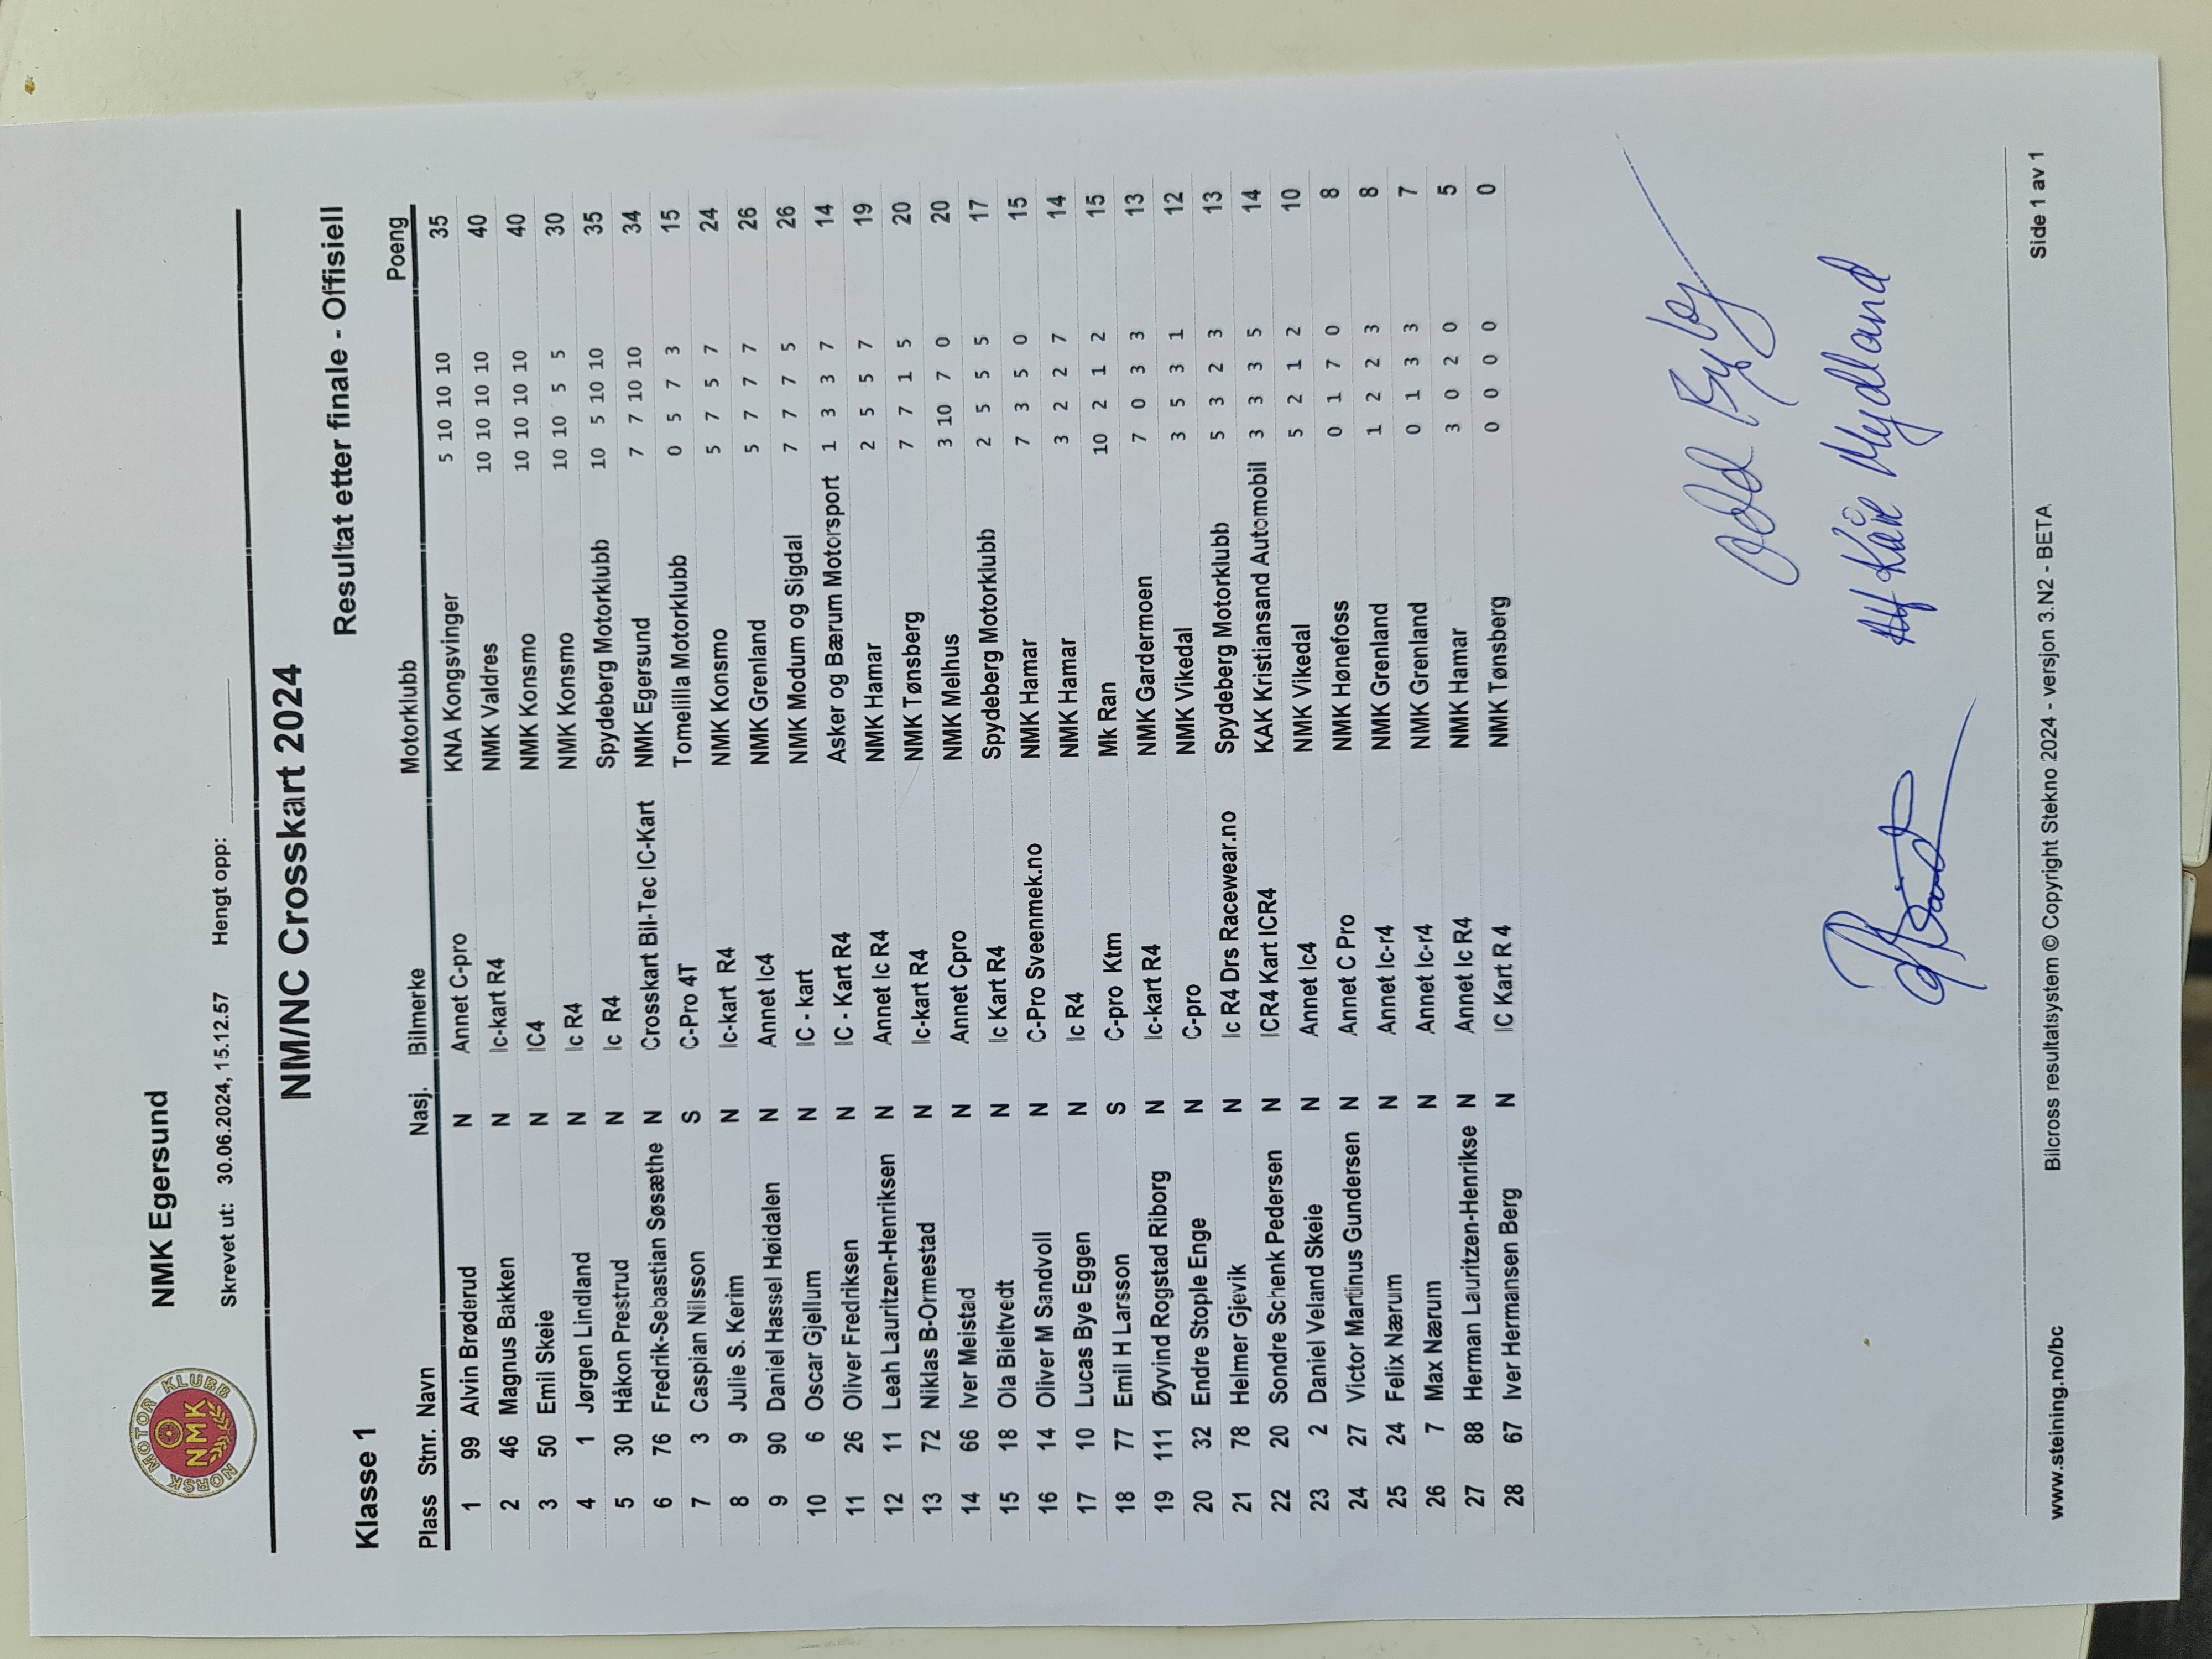 NORSK MOTOR KLUBB
NMK
NMK Egersund
Skrevet ut: 30.06.2024, 15.12.57 Hengt opp:
NM/NC Crosskart 2024
Klasse 1 Resultat etter finale - Offisiell
Plass Stnr. Navn Nasj. Bilmerke Motorklubb Poeng
1 99 Alvin Brøderud N Annet C-pro KNA Kongsvinger 5 10 10 10 35
2 46 Magnus Bakken N Ic-kart R4 NMK Valdres 10 10 10 10 40
3 50 Emil Skeie N IC4 NMK Konsmo 10 10 10 10 40
4 1 Jørgen Lindland N Ic R4 NMK Konsmo 10 10 5 5 30
5 30 Håkon Prestrud N Ic R4 Spydeberg Motorklubb 10 5 10 10 35
6 76 Fredrik-Sebastian Søsæthe N Crosskart Bil-Tec IC-Kart NMK Egersund 7 7 10 10 34
7 3 Caspian Nilsson S C-Pro 4T Tomelilla Motorklubb 0 5 7 3 15
8 9 Julie S. Kerim N Ic-kart R4 NMK Konsmo 5 7 5 7 24
9 90 Daniel Hassel Høidalen N Annet Ic4 NMK Grenland 5 7 7 7 26
10 6 Oscar Gjellum N IC - kart NMK Modum og Sigdal 7 7 7 5 26
11 26 Oliver Fredriksen N IC - Kart R4 Asker og Bærum Motorsport 1 3 3 7 14
12 11 Leah Lauritzen-Henriksen N Annet Ic R4 NMK Hamar 2 5 5 7 19
13 72 Niklas B-Ormestad N Ic-kart R4 NMK Tønsberg 7 7 1 5 20
14 66 Iver Meistad N Annet Cpro NMK Melhus 3 10 7 0 20
15 18 Ola Bieltvedt N Ic Kart R4 Spydeberg Motorklubb 2 5 5 5 17
16 14 Oliver M Sandvoll N C-Pro Sveenmek.no NMK Hamar 7 3 5 0 15
17 10 Lucas Bye Eggen N Ic R4 NMK Hamar 3 2 2 7 14
18 77 Emil H Larsson S C-pro Ktm Mk Ran 10 2 1 2 15
19 111 Øyvind Rogstad Riborg N Ic-kart R4 NMK Gardermoen 7 0 3 3 13
20 32 Endre Stople Enge N C-pro NMK Vikedal 3 5 3 1 12
21 78 Helmer Gjevik N Ic R4 Drs Racewear.no Spydeberg Motorklubb 5 3 2 3 13
22 20 Sondre Schenk Pedersen N ICR4 Kart ICR4 KAK Kristiansand Automobil 3 3 3 5 14
23 2 Daniel Veland Skeie N Annet Ic4 NMK Vikedal 5 2 1 2 10
24 27 Victor Martinus Gundersen N Annet C Pro NMK Hønefoss 0 1 7 0 8
25 24 Felix Nærum N Annet Ic-r4 NMK Grenland 1 2 2 3 8
26 7 Max Nærum N Annet Ic-r4 NMK Grenland 0 1 3 3 7
27 88 Herman Lauritzen-Henrikse N Annet Ic R4 NMK Hamar 3 0 2 0 5
28 67 Iver Hermansen Berg N IC Kart R 4 NMK Tønsberg 0 0 0 0 0
Alf Kåre Mydland
www.steining.no/bc Bilcross resultatsystem © Copyright Stekno 2024 - versjon 3.N2 - BETA Side 1 av 1